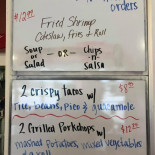 orders
$12.00
Fried Shrimp
Coleslaw, Fries & Roll
Soup or Salad - OR - Chips -n- Salsa
2 crispy tacos w/ $8.00
rice, beans, pico & guacamole
2 Grilled Porkchops w/ $12.00
mashed potatoes, mixed vegetables
& roll